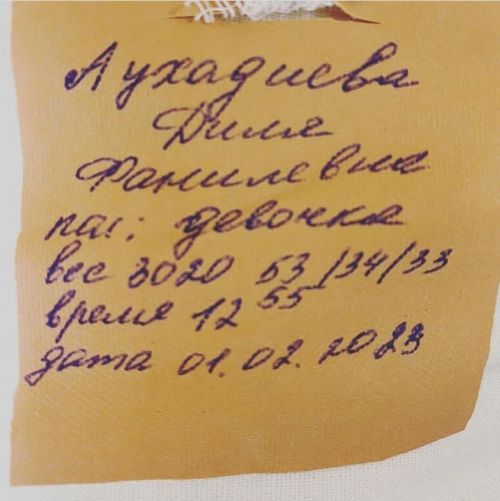 Аухадиева
Диля
Фанилевна
пол: девочка
вес 3020 53/34/33
время 12 55
дата 01.02.2023